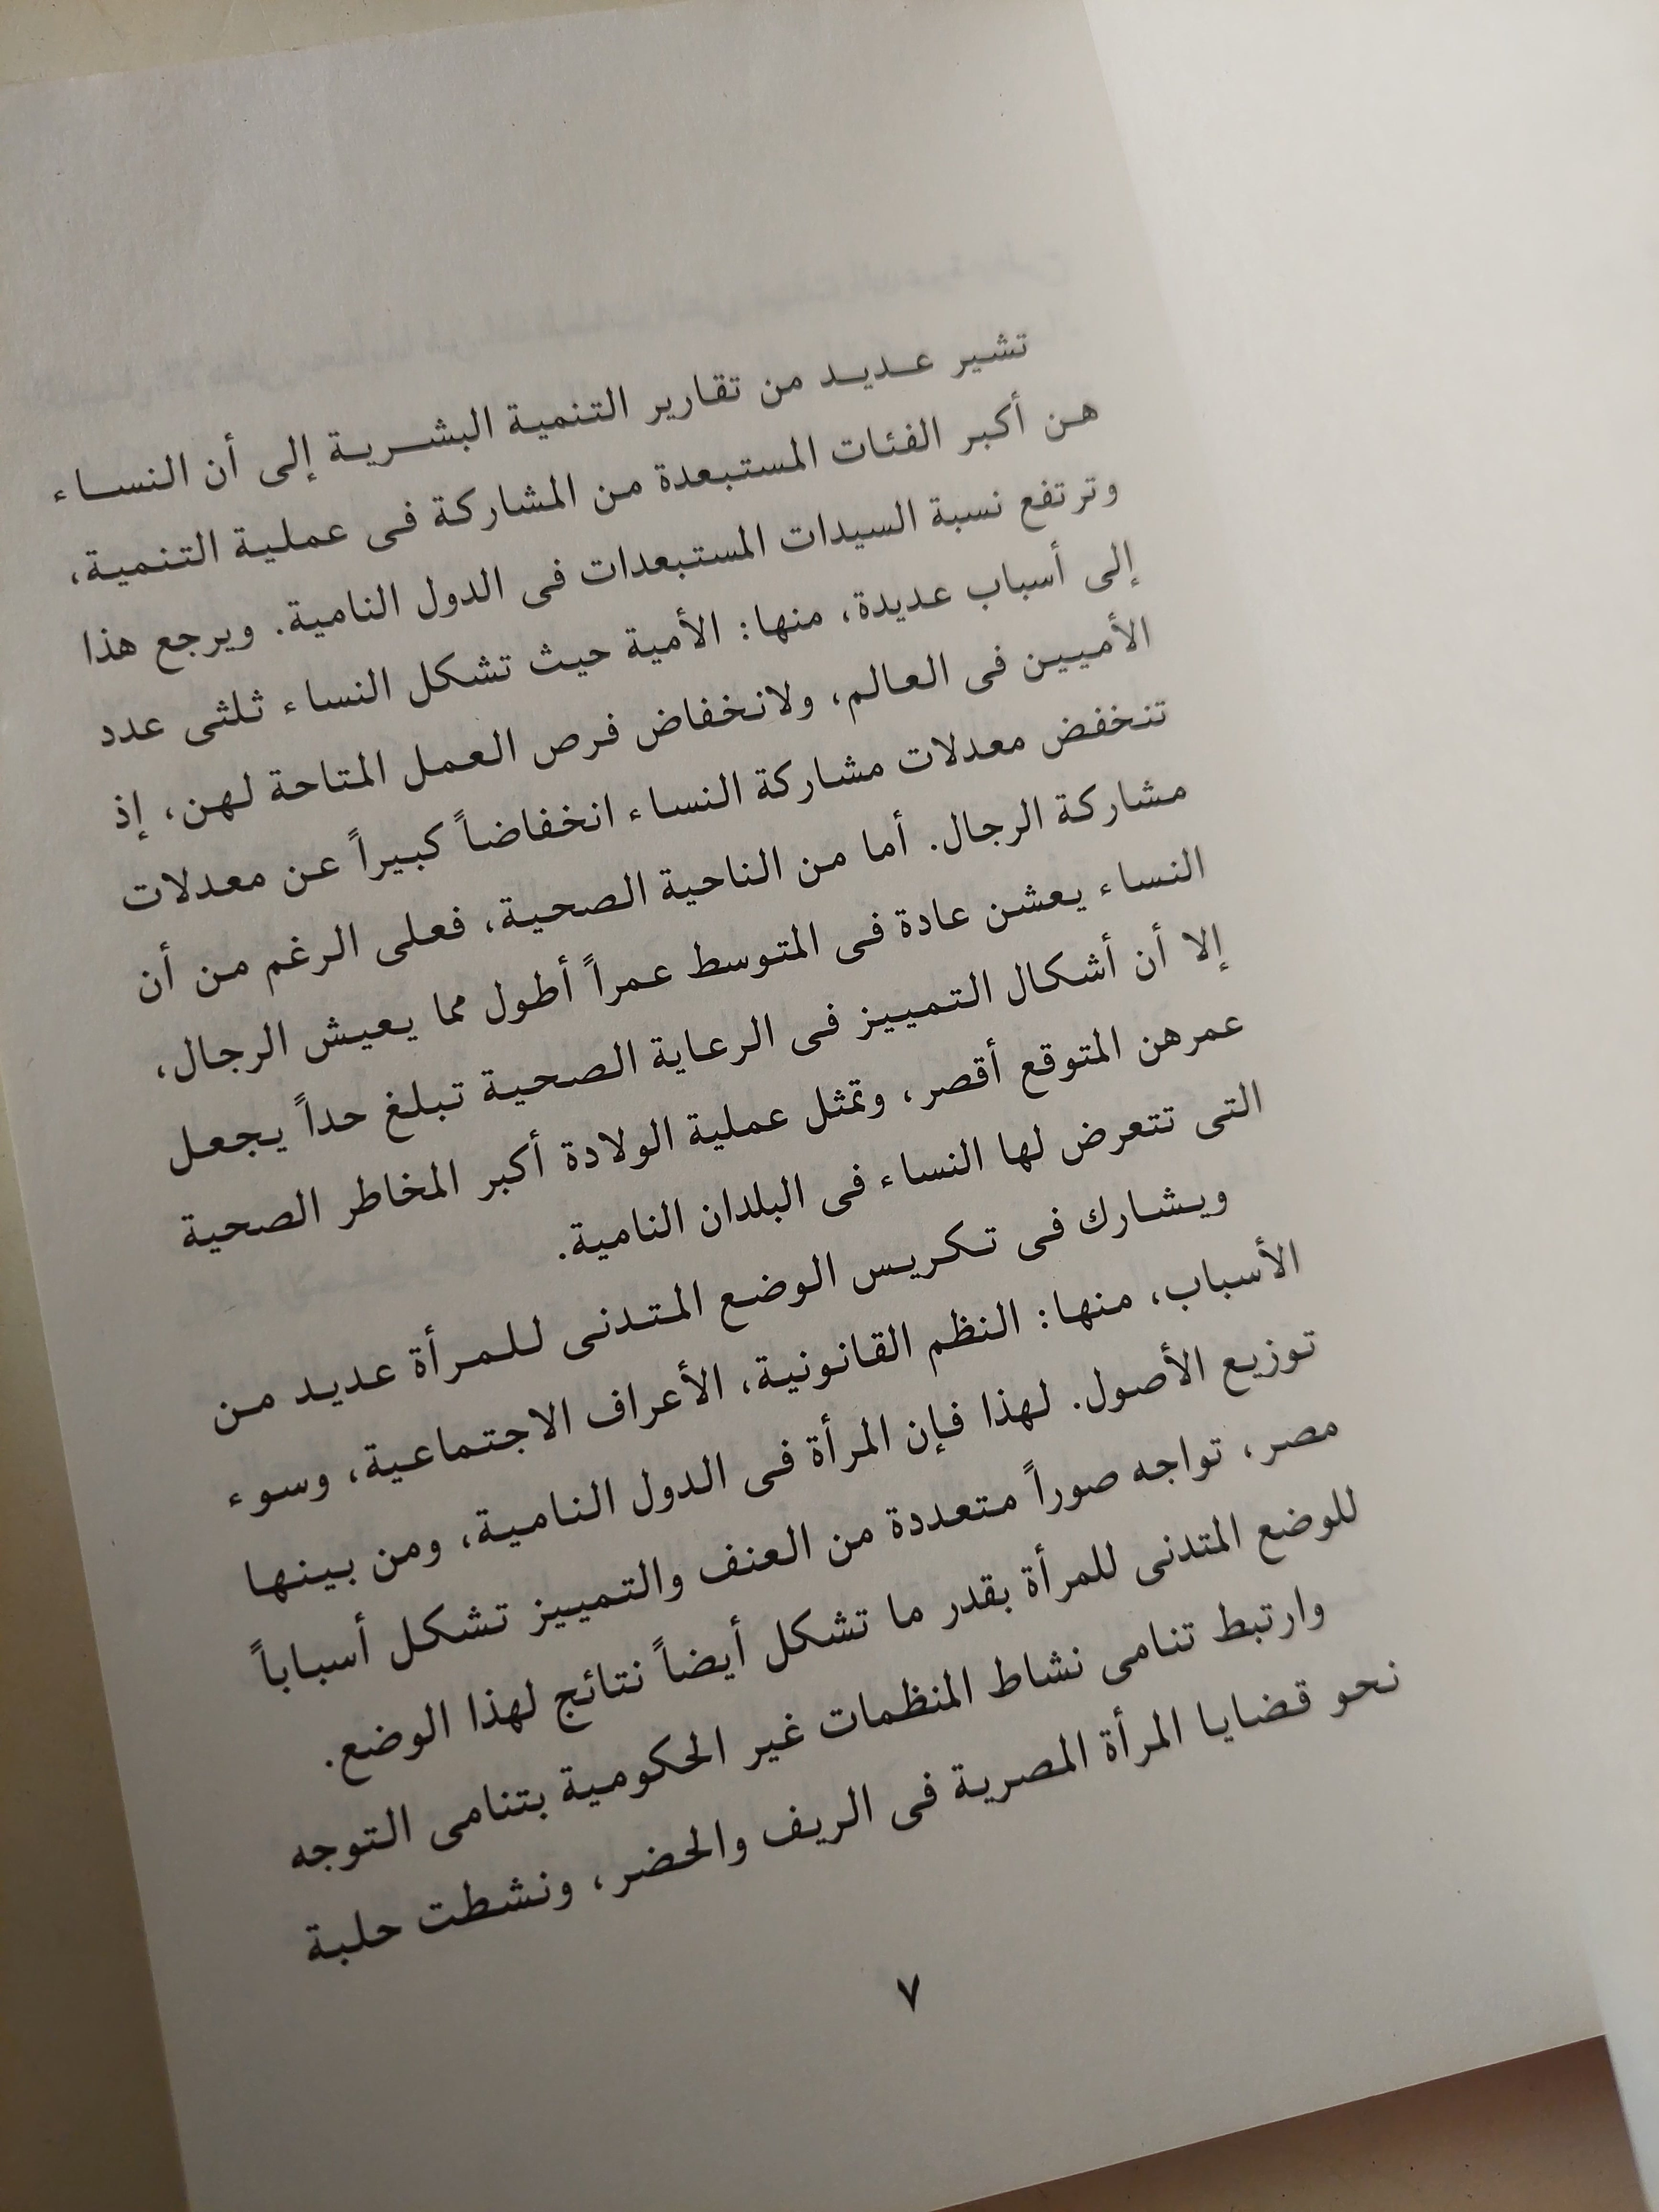 تشير عديد من تقارير التنمية البشرية إلى أن النساء
هن أكبر الفئات المستبعدة من المشاركة فى عملية التنمية،
وترتفع نسبة السيدات المستبعدات فى الدول النامية. ويرجع هذا
إلى أسباب عديدة، منها: الأمية حيث تشكل النساء ثلثى عدد
الأميين فى العالم، ولانخفاض فرص العمل المتاحة لهن، إذ
تنخفض معدلات مشاركة النساء انخفاضاً كبيراً عن معدلات
مشاركة الرجال. أما من الناحية الصحية، فعلى الرغم من أن
النساء يعشن عادة فى المتوسط عمراً أطول مما يعيش الرجال،
إلا أن أشكال التمييز فى الرعاية الصحية تبلغ حداً يجعل
عمرهن المتوقع أقصر، وتمثل عملية الولادة أكبر المخاطر الصحية
التى تتعرض لها النساء فى البلدان النامية.
ويشارك فى تكريس الوضع المتدنى للمرأة عديد من
الأسباب، منها: النظم القانونية، الأعراف الاجتماعية، وسوء
توزيع الأصول. لهذا فإن المرأة فى الدول النامية، ومن بينها
مصر، تواجه صوراً متعددة من العنف والتمييز تشكل أسباباً
للوضع المتدنى للمرأة بقدر ما تشكل أيضاً نتائج لهذا الوضع.
وارتبط تنامى نشاط المنظمات غير الحكومية بتنامى التوجه
نحو قضايا المرأة المصرية فى الريف والحضر، ونشطت حلبة
٧